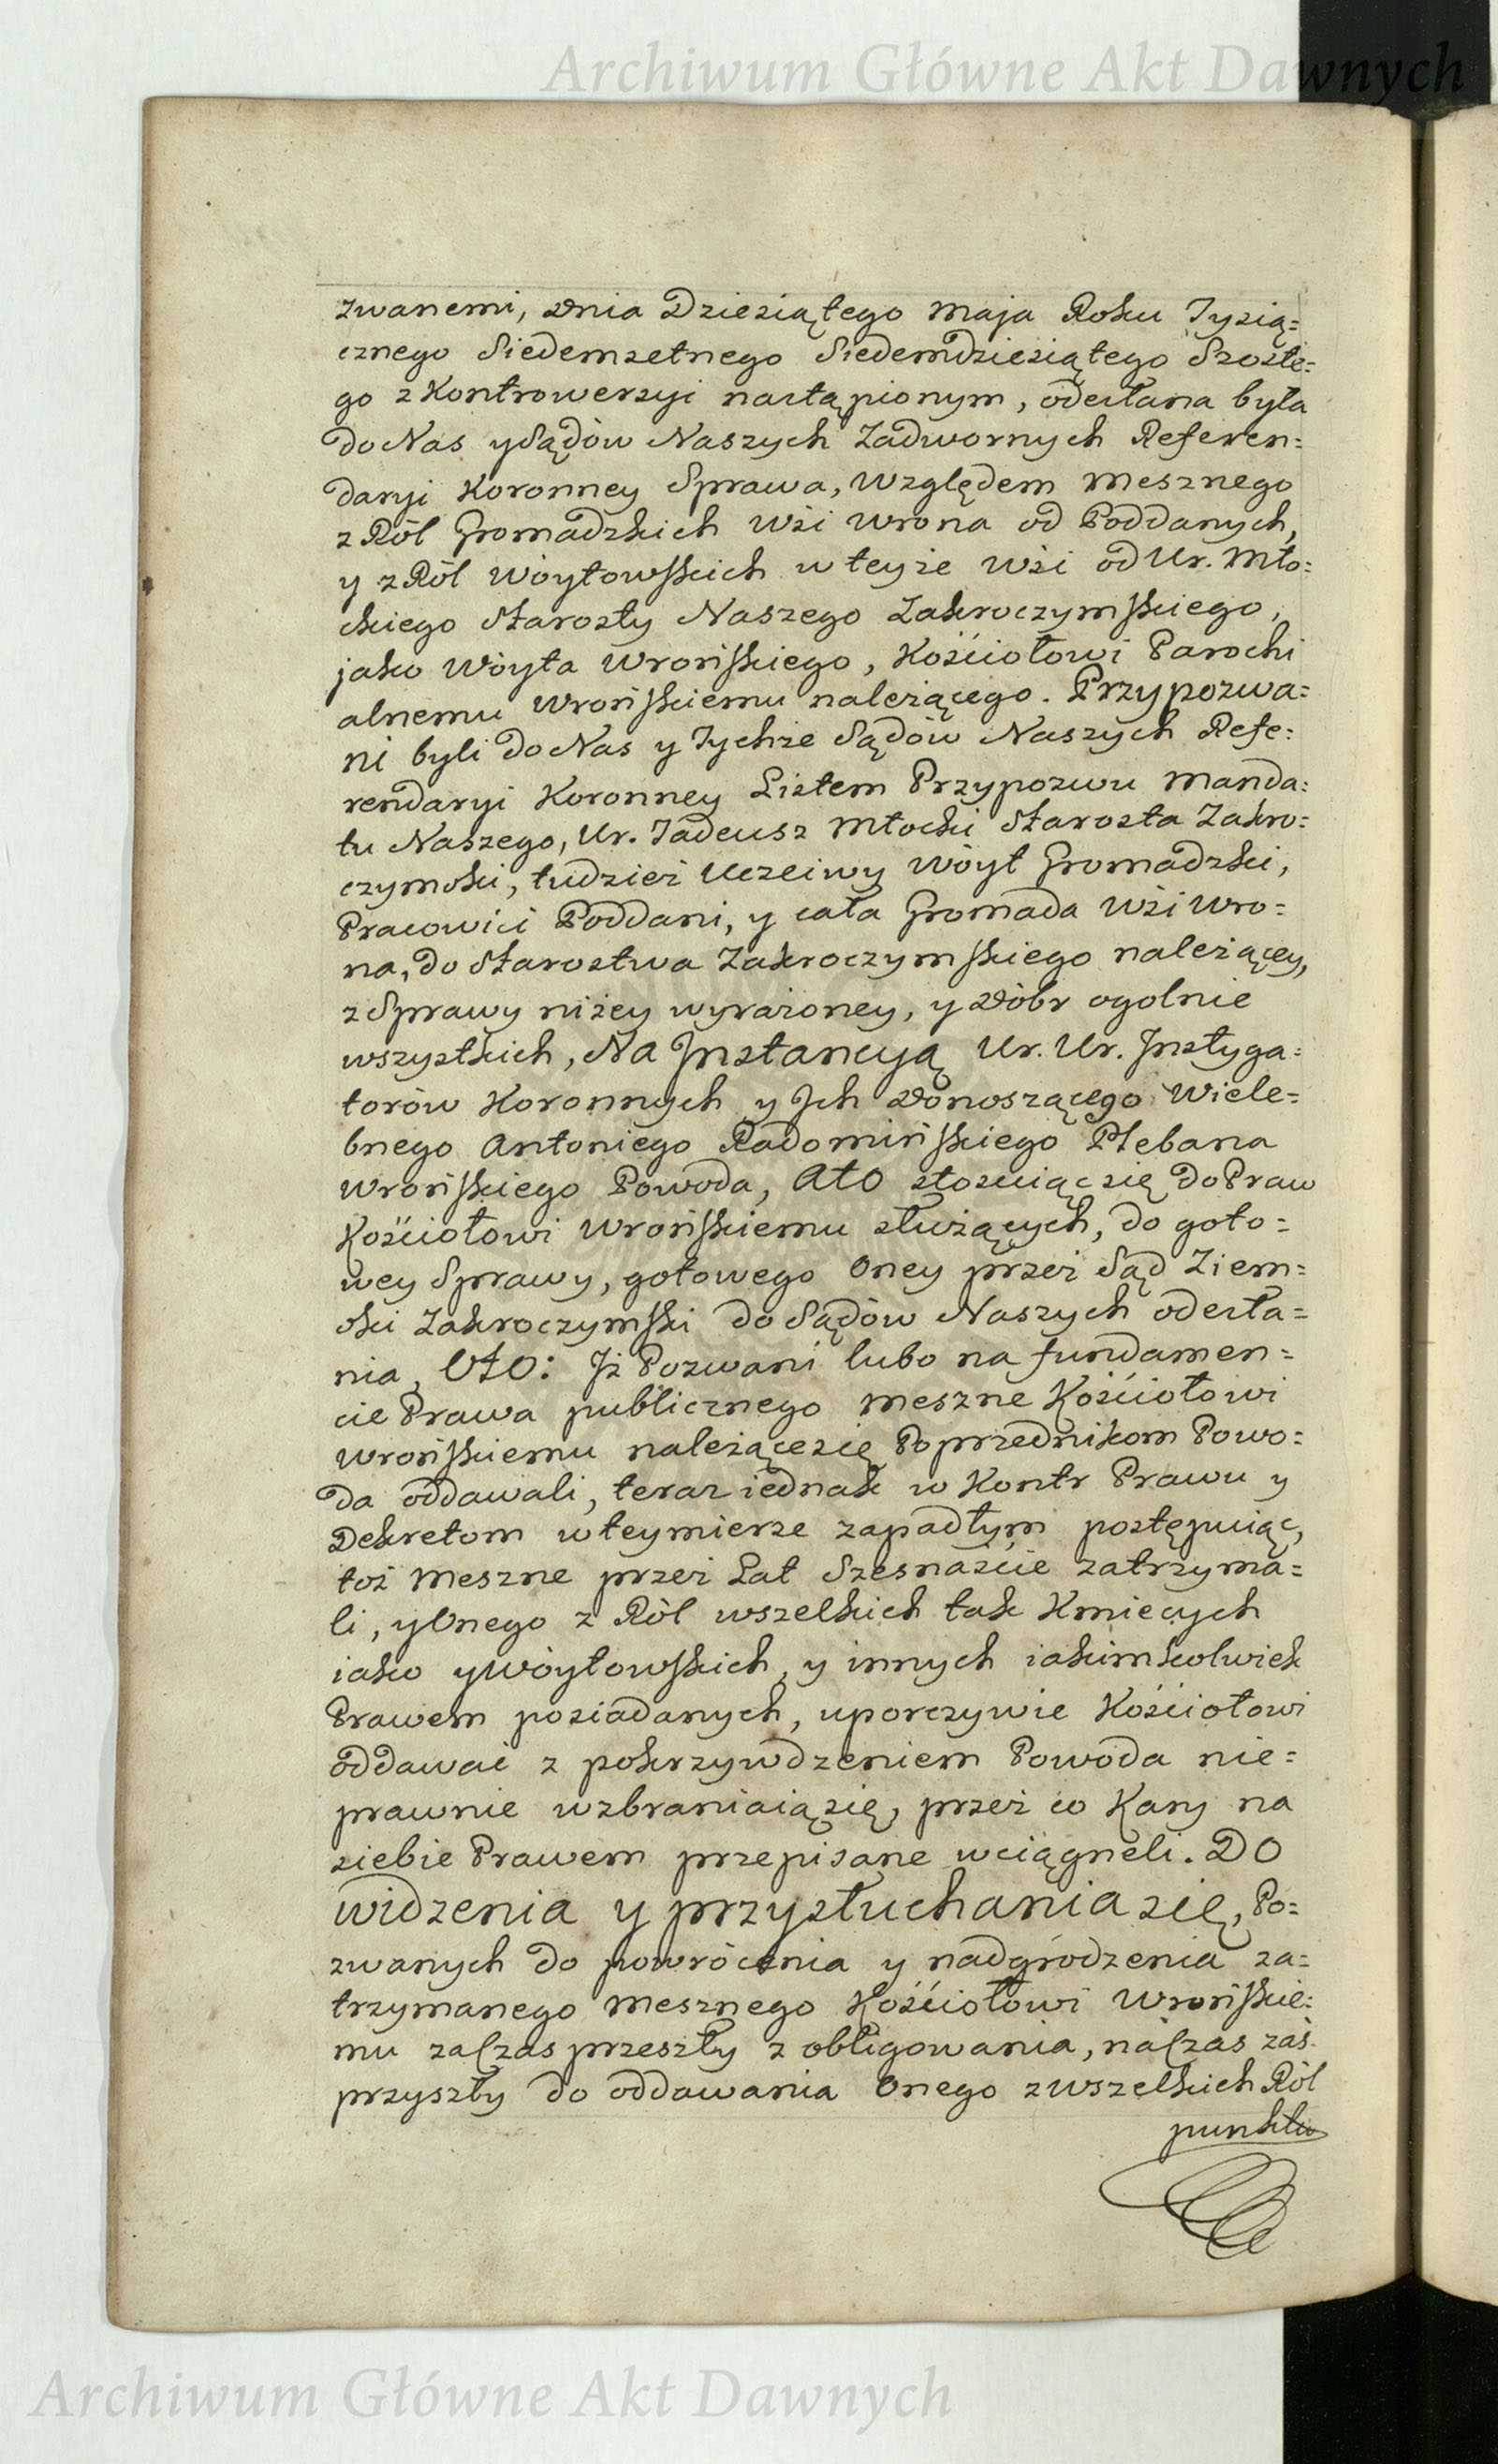 Archiwum Główne Akt Dawnych
zwanemi, dnia Dziesiątego Maja Roku Tysią=
cznego Siedemsetnego Siedemdziesiątego Szoste=
go z Kontrowersyi nastąpionym, odesłana była
do Nas y Sądów Naszych Zadwornych Referen=
daryi Koronney Sprawa, Względem Mesznego
z Ról Gromadzkich Wśi Wrona od Poddanych,
y z Ról Woytowskich w teyże Wśi od Ur. Mło=
ckiego Starosty Naszego Zakroczymskiego,
jako Wóyta Wrońskiego, Kościołowi Parochi
alnemu Wrońskiemu należącego. Przypozwa=
ni byli do Nas y Tychże Sądów Naszych Refe=
rendaryi Koronney Listem Przypozwu Manda=
tu Naszego, Ur. Tadeusz Młocki Starosta Zakro=
czymski, tudzież Uczciwy Wóyt Gromadzki,
Pracowici Poddani, y cała Gromada Wśi Wro=
na, do Starostwa Zakroczymskiego należącey,
z Sprawy niżey wyrażoney, y Dóbr ogolnie
wszystkich, Na Jnstancyą Ur. Ur. Jnstyga=
torów Koronnych y Jch Donoszącego Wiele=
bnego Antoniego Radomińskiego Plebana
Wrońskiego Powoda, Ato stosuiąc się do Praw
Kościołowi Wrońskiemu służących, do goto=
wey Sprawy, gotowego Oney przez Sąd Ziem=
ski Zakroczymski do Sądów Naszych odesła=
nia, Oto: Jż Pozwani lubo na fundamen=
cie Prawa publicznego meszne Kościołowi
Wrońskiemu należące się Poprzednikom Powo=
da oddawali, teraz iednak w Kontr Prawu y
Dekretom w teymierze zapadłym postępuiąc,
toż Meszne przez Lat Szesnaście zatrzyma=
li, y Onego z Ról wszelkich tak Kmiecych
iako y Woytowskich, y innych iakimkolwiek
Prawem posiadanych, uporczywie Kościołowi
oddawać z pokrzywdzeniem Powoda nie=
prawnie wzbraniaią się, przez co Kary na
siebie Prawem przepisane wciągneli. DO
widzenia y przysłuchania się, Po=
zwanych do powrócenia y nadgrodzenia za=
trzymanego Mesznego Kościołowi Wrońskie=
mu za Czas przeszły z obligowania, na Czas zaś
przyszły do oddawania Onego z wszelkich Ról
punktu
Archiwum Główne Akt Dawnych